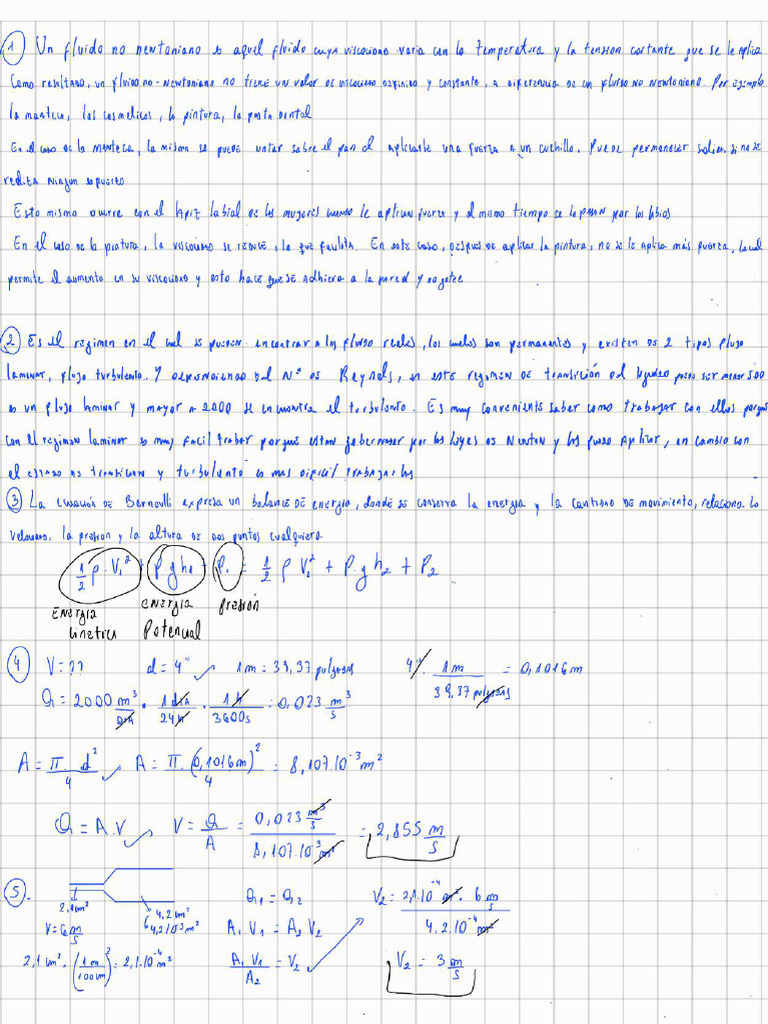 1 Un fluido no newtoniano es aquel fluido cuya viscosidad varia con la temperatura y la tension cortante que se le aplica
Como resultado, un fluido no-newtoniano no tiene un valor de viscosidad definido y constante, a diferencia de un fluido no newtoniano. Por ejemplo
la manteca, los cosmeticos, la pintura, la pasta dental
En el caso de la manteca, la misma se puede untar sobre el pan al aplicarle una fuerza a un cuchillo. Puede permanecer solida si no se
realiza ningun esfuerzo
Esto mismo ocurre con el lapiz labial de las mujeres cuando le aplican fuerza y al mismo tiempo se lo pasan por los labios
En el caso de la pintura, la viscosidad se reduce, lo que facilita. En este caso, despues de aplicar la pintura, no se le aplica más fuerza, lo cual
permite el aumento en su viscosidad y esto hace que se adhiera a la pared y no gotee
2 Es el regimen en el cual se pueden encontrar a los fluido reales, los cuales son permanentes y existen de 2 tipos flujo
laminar, flujo turbulento. Y dependiendo del Nº de Reynols, en este regimen de transición del liquido puede ser menor
es un flujo laminar y mayor a 2000 se encuentra el turbulento. Es muy conveniente saber como trabajar con ellos porque
con el regimen laminar es muy facil trabar porque estan gobernados por las leyes de Newton y las puedo Aplicar, en cambio con
el estado de transicion y turbulento es mas dificil trabajarlos
3 La ecuación de Bernoulli expresa un balance de energia, donde se conserva la energia y la cantidad de movimiento, relaciona la
velocidad, la presion y la altura de dos puntos cualquiera.
1/2 ρ . V₁² + ρ g h₁ + P₁ = 1/2 ρ V₂² + ρ . g h₂ + P₂
ENERGIA Cinetica
ENERGIA Potencial
presión
4 V = ?? d = 4" 1 m = 39,37 pulgadas 4" . 1m / 39,37 pulgadas = 0,1016 m
Q = 2000 m³/dia . 1 dia/24 h . 1 h/3600s = 0,023 m³/s
A = π . d²/4 A = π . (0,1016m)²/4 = 8,107.10⁻³ m²
Q = A.V V = Q/A = 0,023 m³/s / 8,107.10⁻³ m² = 2,855 m/s
5. Q1 = Q2 V₂ = 2,1.10⁻⁴ m² . 6 m/s / 4,2.10⁻⁴ m²
2,1cm² 4,2 cm²
V = 6 m/s A₁ V₁ = A₂ V₂
2,1 cm² . (1 m/100cm)² = 2,1.10⁻⁴ m² A₁ V₁/A₂ = V₂ V₂ = 3 m/s